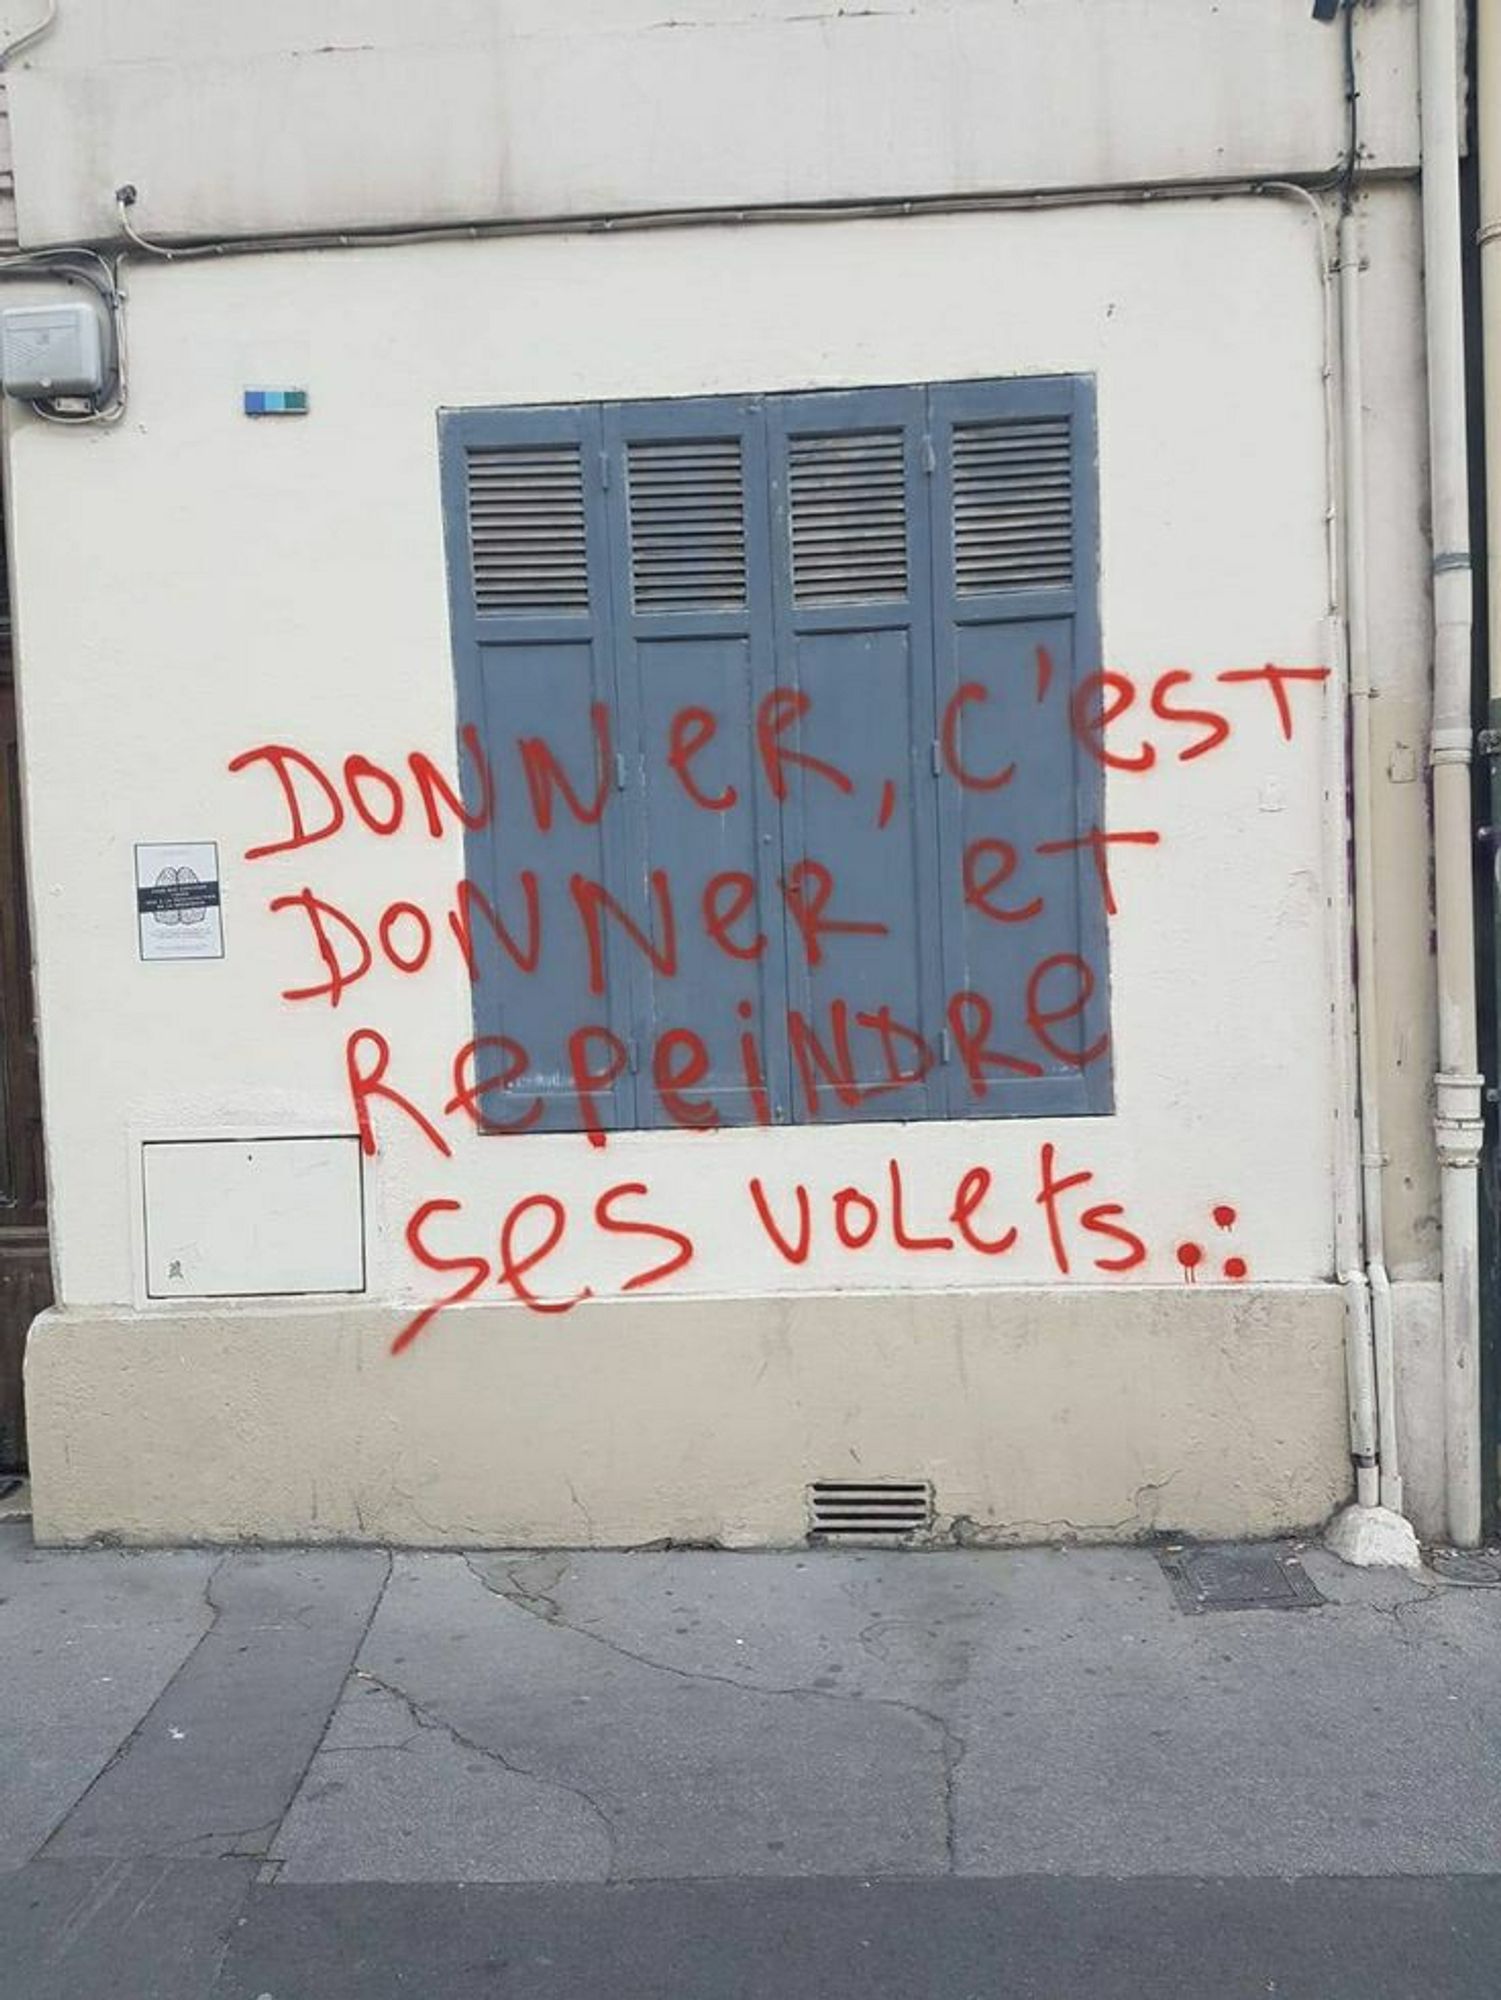 DONNeR, c'esT
DONNeR eT
RePeiNDRe
ses voLets.∴